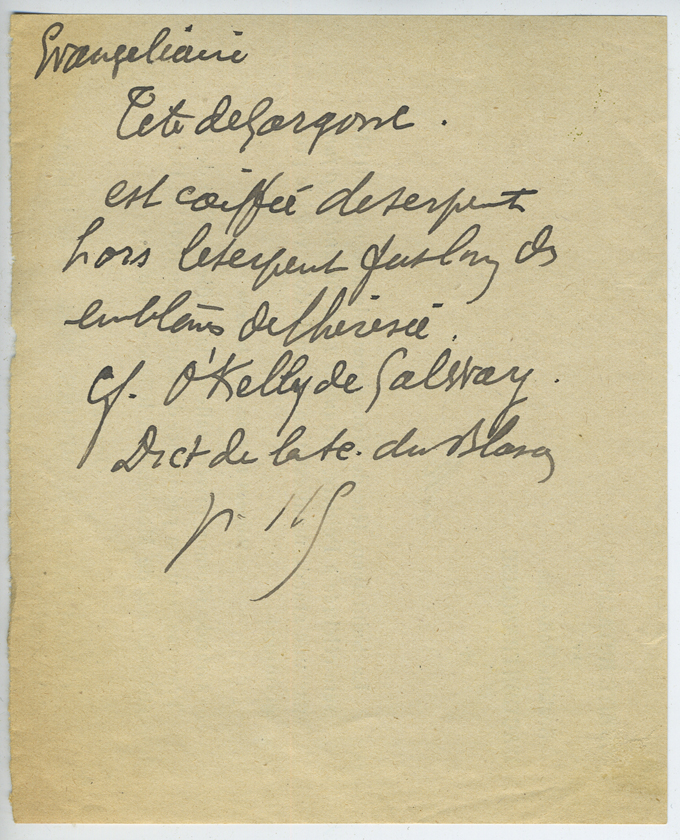 Evangeliaire
Tete de Gorgone.
est coiffée de serpent
hors le serpent fut l'un des
emblêmes de l'hérésie.
Cf. O'Kelly de Galway.
Dict de la sc. du Blason
p. 115